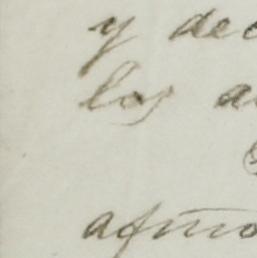 y dec
los a
afmo